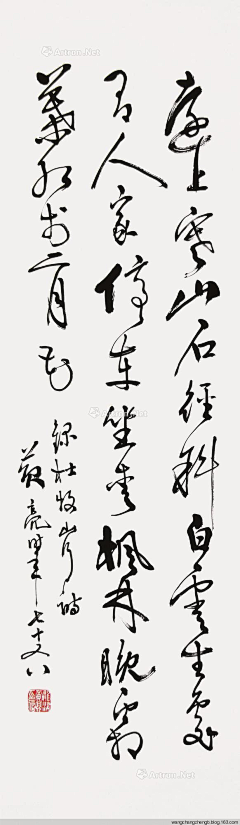 遠上寒山石徑斜白雲生處
有人家停車坐愛楓林晚霜
葉紅於二月花
錄杜牧山行詩
亮時年七十又八
Artron.Net
wangchengchengb.blog.163.com